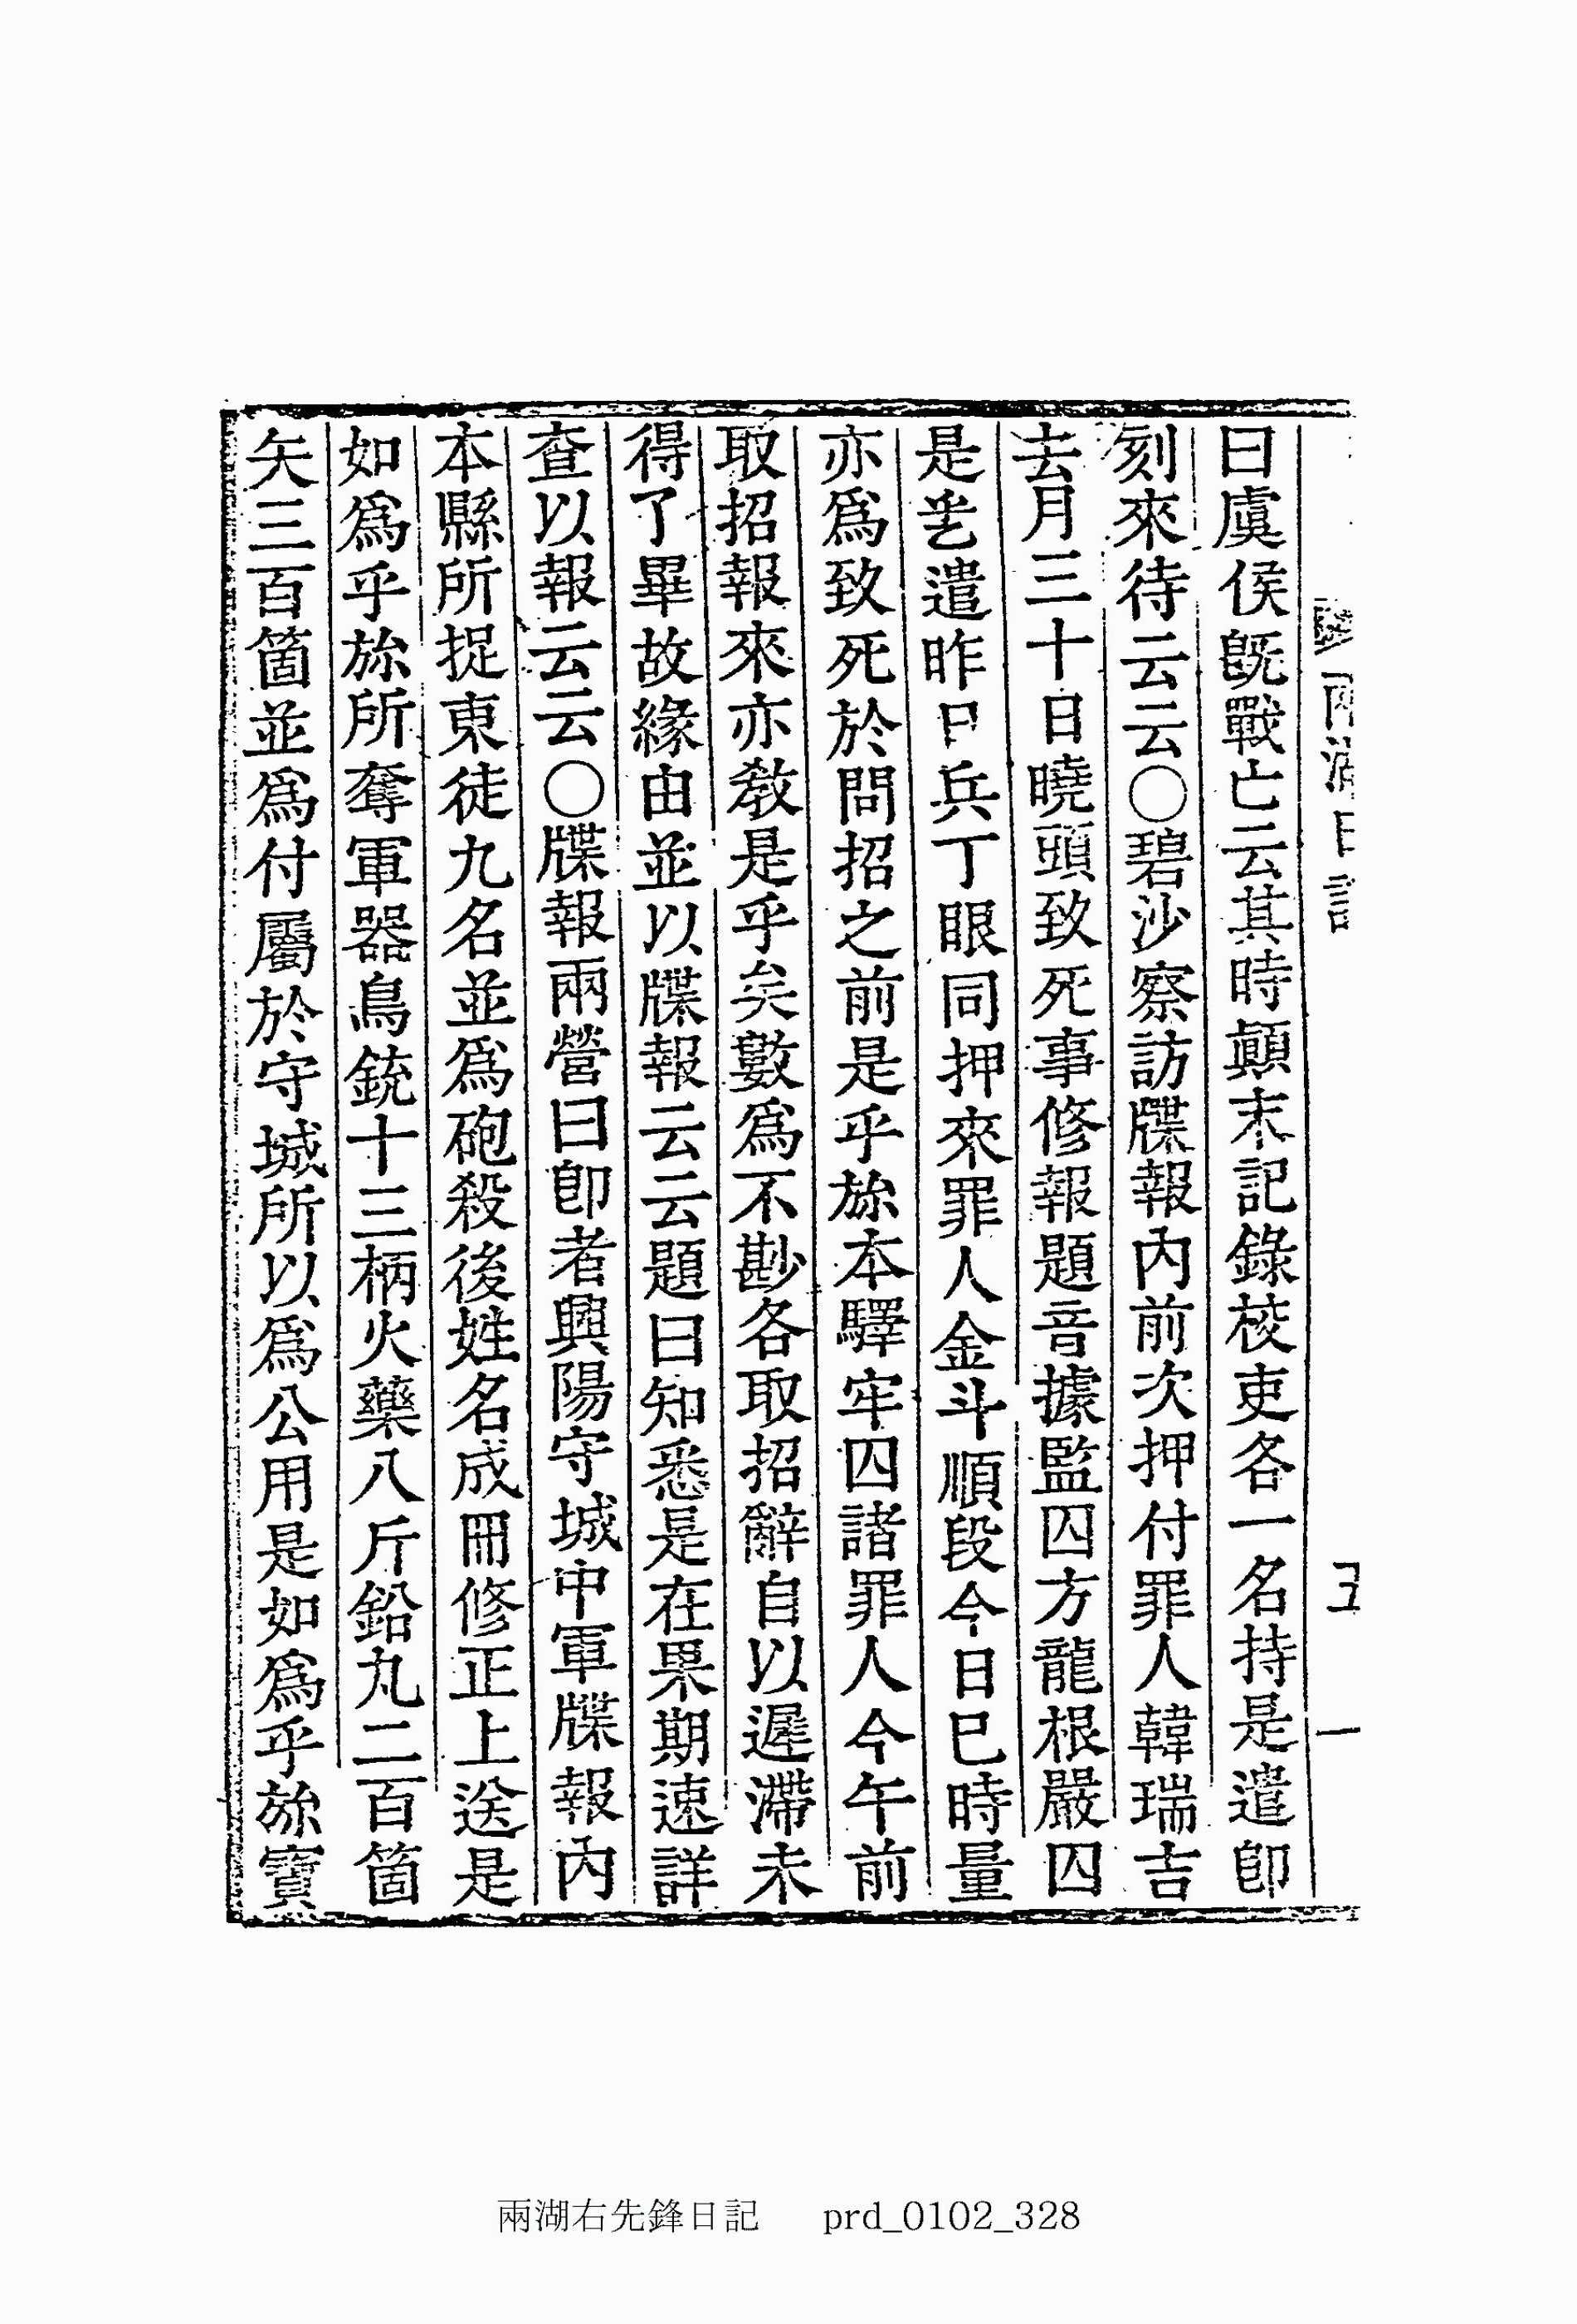 兩湖日記
曰虞侯旣戰亡云其時顚末記錄校吏各一名持是遣卽
刻來待云云○碧沙察訪牒報內前次押付罪人韓瑞吉
去月三十日曉頭致死事修報題音據監囚方龍根嚴囚
是乎遣昨日兵丁眼同押來罪人金斗順段今日巳時量
亦爲致死於問招之前是乎旀本驛牢囚諸罪人今午前
取招報來亦敎是乎矣數爲不尠各取招辭自以遲滯未
得了畢故緣由並以牒報云云題曰知悉是在果期速詳
査以報云云○牒報兩營曰卽者興陽守城中軍牒報內
本縣所捉東徒九名並爲砲殺後姓名成冊修正上送是
如爲乎旀所奪軍器鳥銃十三柄火藥八斤鉛丸二百箇
矢三百箇並爲付屬於守城所以爲公用是如爲乎旀寶
兩湖右先鋒日記 prd_0102_328